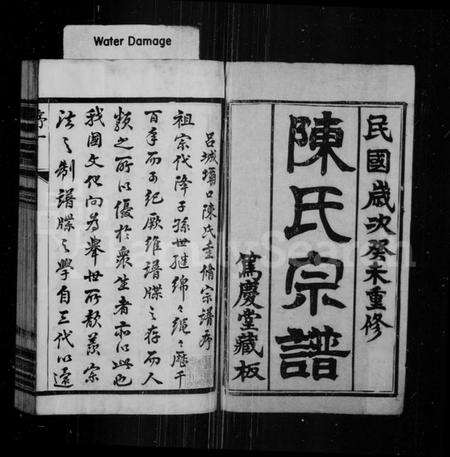 Water Damage
民國歲次癸未重修
陳氏宗譜
篤慶堂藏板
呂城壩口陳氏重脩宗譜序
祖宗代降子孫世繼綿〻繩〻歷千
百年而可紀厥維譜牒之存而人
類之所以優於衆生者亦以此也
我國文化向為舉世所欽羨宗
法之制譜牒之學自三代以還
序一